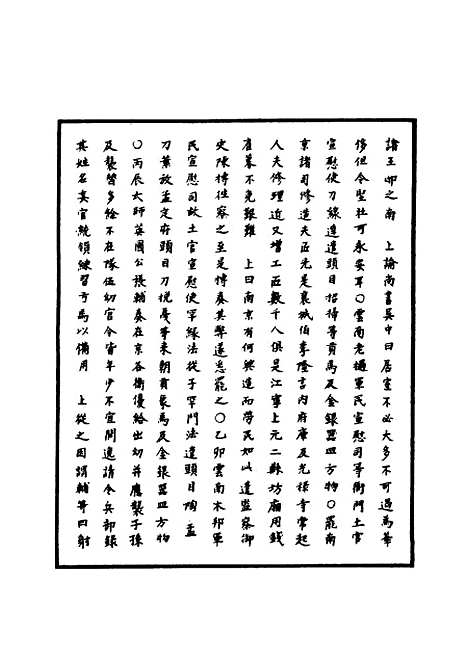 諸王邸之南　上諭尚書吳中曰居室不必大多不可過為華
侈但令堅壮可永安耳○雲南老撾軍民宣慰司等衙門土官
宣慰使刀線達遣頭目招椿等貢馬及金銀器皿方物○罷南
京諸司修造夫匠先是襄城伯李隆言内府庫及光禄寺常起
人夫修理近又增工匠數千人俱是江寧上元二縣坊廂用錢
雇募不免艱難　上曰南京有何興造而勞民如此遣監察御
史陳摶徃察之至是摶奏其弊遂悉罷之○乙卯雲南木邦軍
民宣慰司故土官宣慰使罕線法從子罕門法遣頭目陶孟
刀葉放孟定府頭目刀扳戞等来朝貢象馬及金銀器皿方物
○丙辰太師英國公張輔奏在京各衛優給出幼并應襲子孫
及襲替多餘不在隊伍幼官令皆年少不宜閒逸請令兵部錄
其姓名委官統領練習弓馬以備用　上從之因謂輔等曰射